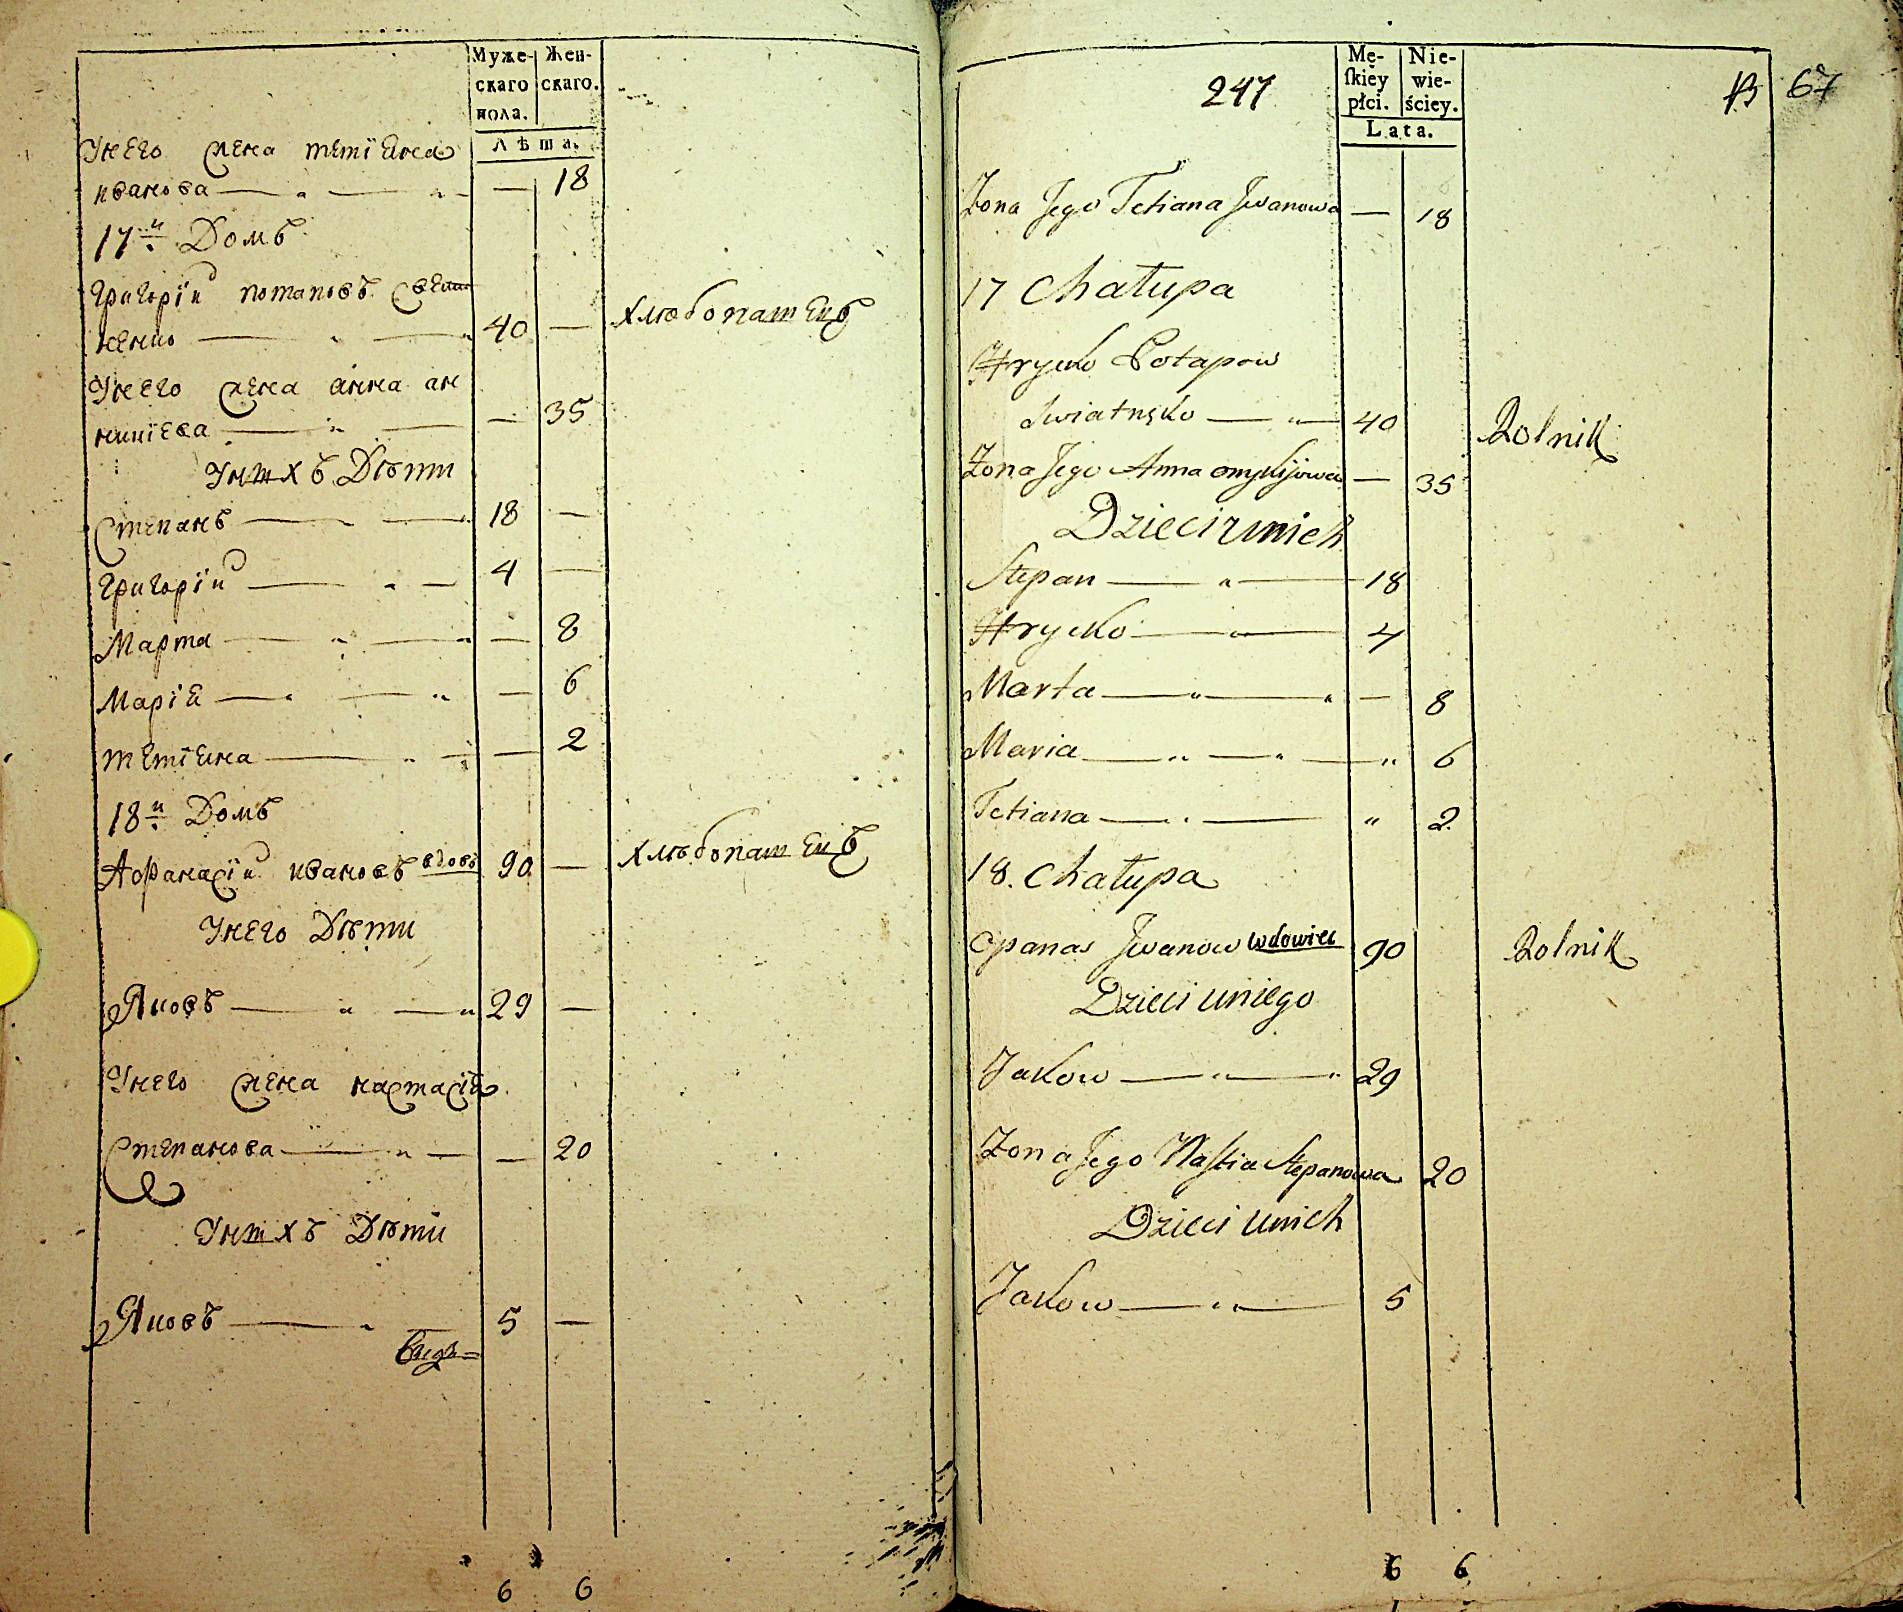 Муже-
скаго
пола.
Жен-
скаго.
Лѣта.
Унего жена тетіяна
иванова — 〃 — 〃 — — 18
17й Домъ
Григорїй потаповъ свят
ненко — 〃 — 40 — хлѣбопашецъ
Унего жена анна ан
нипїева — 〃 — — 35
Унихъ Дѣти
Степанъ — 〃 — 18 —
Григорїй — 〃 — 4 —
Марта — 〃 — — 8
Марія — 〃 — 〃 — 6
тетіяна — 〃 — — 2
18й Домъ
Афанасїй ивановъ вдовъ 90 — хлѣбопашецъ
Унего Дѣти
Яковъ — 〃 — 〃 29 —
Унего жена настасія
Степанова — 〃 — — 20
Унихъ Дѣти
Яковъ — 〃 — 5 —
6 6
247
Mę-
ſkiey
płci.
Nie-
wie-
ściey.
Lata.
67
Żona Jego Tetiana Jwanowa — 18
17 Chałupa
Hrycko Potapow
Swiatnęko — 〃 — 40 Rolnik
Żona Jego Anna — 35
Dzieci unich
Stepan — 〃 — 18
Hrycko — 〃 — 4
Marta — 〃 — 〃 — 8
Maria — 〃 — 〃 — 〃 6
Tetiana — 〃 — 〃 2
18. Chałupa
Opanas Jwanow wdowiec 90 Rolnik
Dzieci uniego
Jakow — 〃 — 〃 29
Żona Jego Nastia Stepanowa 20
Dzieci unich
Jakow — 〃 — 5
6 6